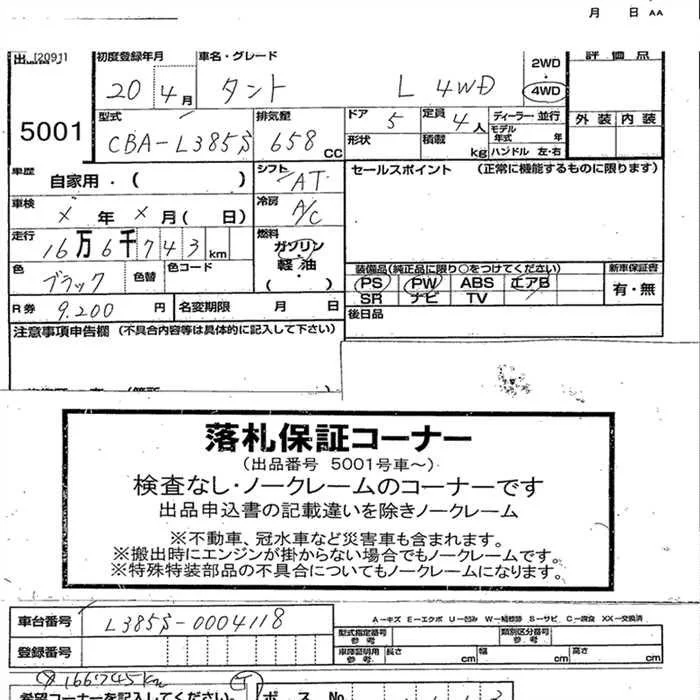 月 日 AA
[2091]
初度登録年月 車名・グレード 2WD ・ 4WD 評価点
20 4月 タント L 4WD
5001
型式 排気量 ドア 定員 ディーラー・並行 外装 内装
CBA-L385S 658 CC 5 4人 モデル年式 年
形状 積載 kg ハンドル 左・右
車歴 自家用・( ) シフト AT セールスポイント (正常に機能するものに限ります)
車検 メ年 メ月( 日) 冷房 A/C
走行 16万6千743km 燃料 ガソリン・軽油・( )
色 ブラック 色替 色コード
装備品(純正品に限り○をつけてください) 新車保証書
PS PW ABS エアB 有・無
SR ナビ TV
R券 9.200円 名変期限 月 日 後日品
注意事項申告欄 (不具合内容等は具体的に記入して下さい)
落札保証コーナー
(出品番号 5001号車～)
検査なし・ノークレームのコーナーです
出品申込書の記載違いを除きノークレーム
※不動車、冠水車など災害車も含まれます。
※搬出時にエンジンが掛からない場合でもノークレームです。
※特殊特装部品の不具合についてもノークレームになります。
A－キズ E－エクボ U－凹み W－補修跡 S－サビ C－腐食 XX－交換済
車台番号 L385S-0004118
型式指定番号 参考 類別区分番号 参考
登録番号 車庫証明用 参考 長さ cm 幅 cm 高さ cm
166745km
希望コーナーを記入してください。 ポス No